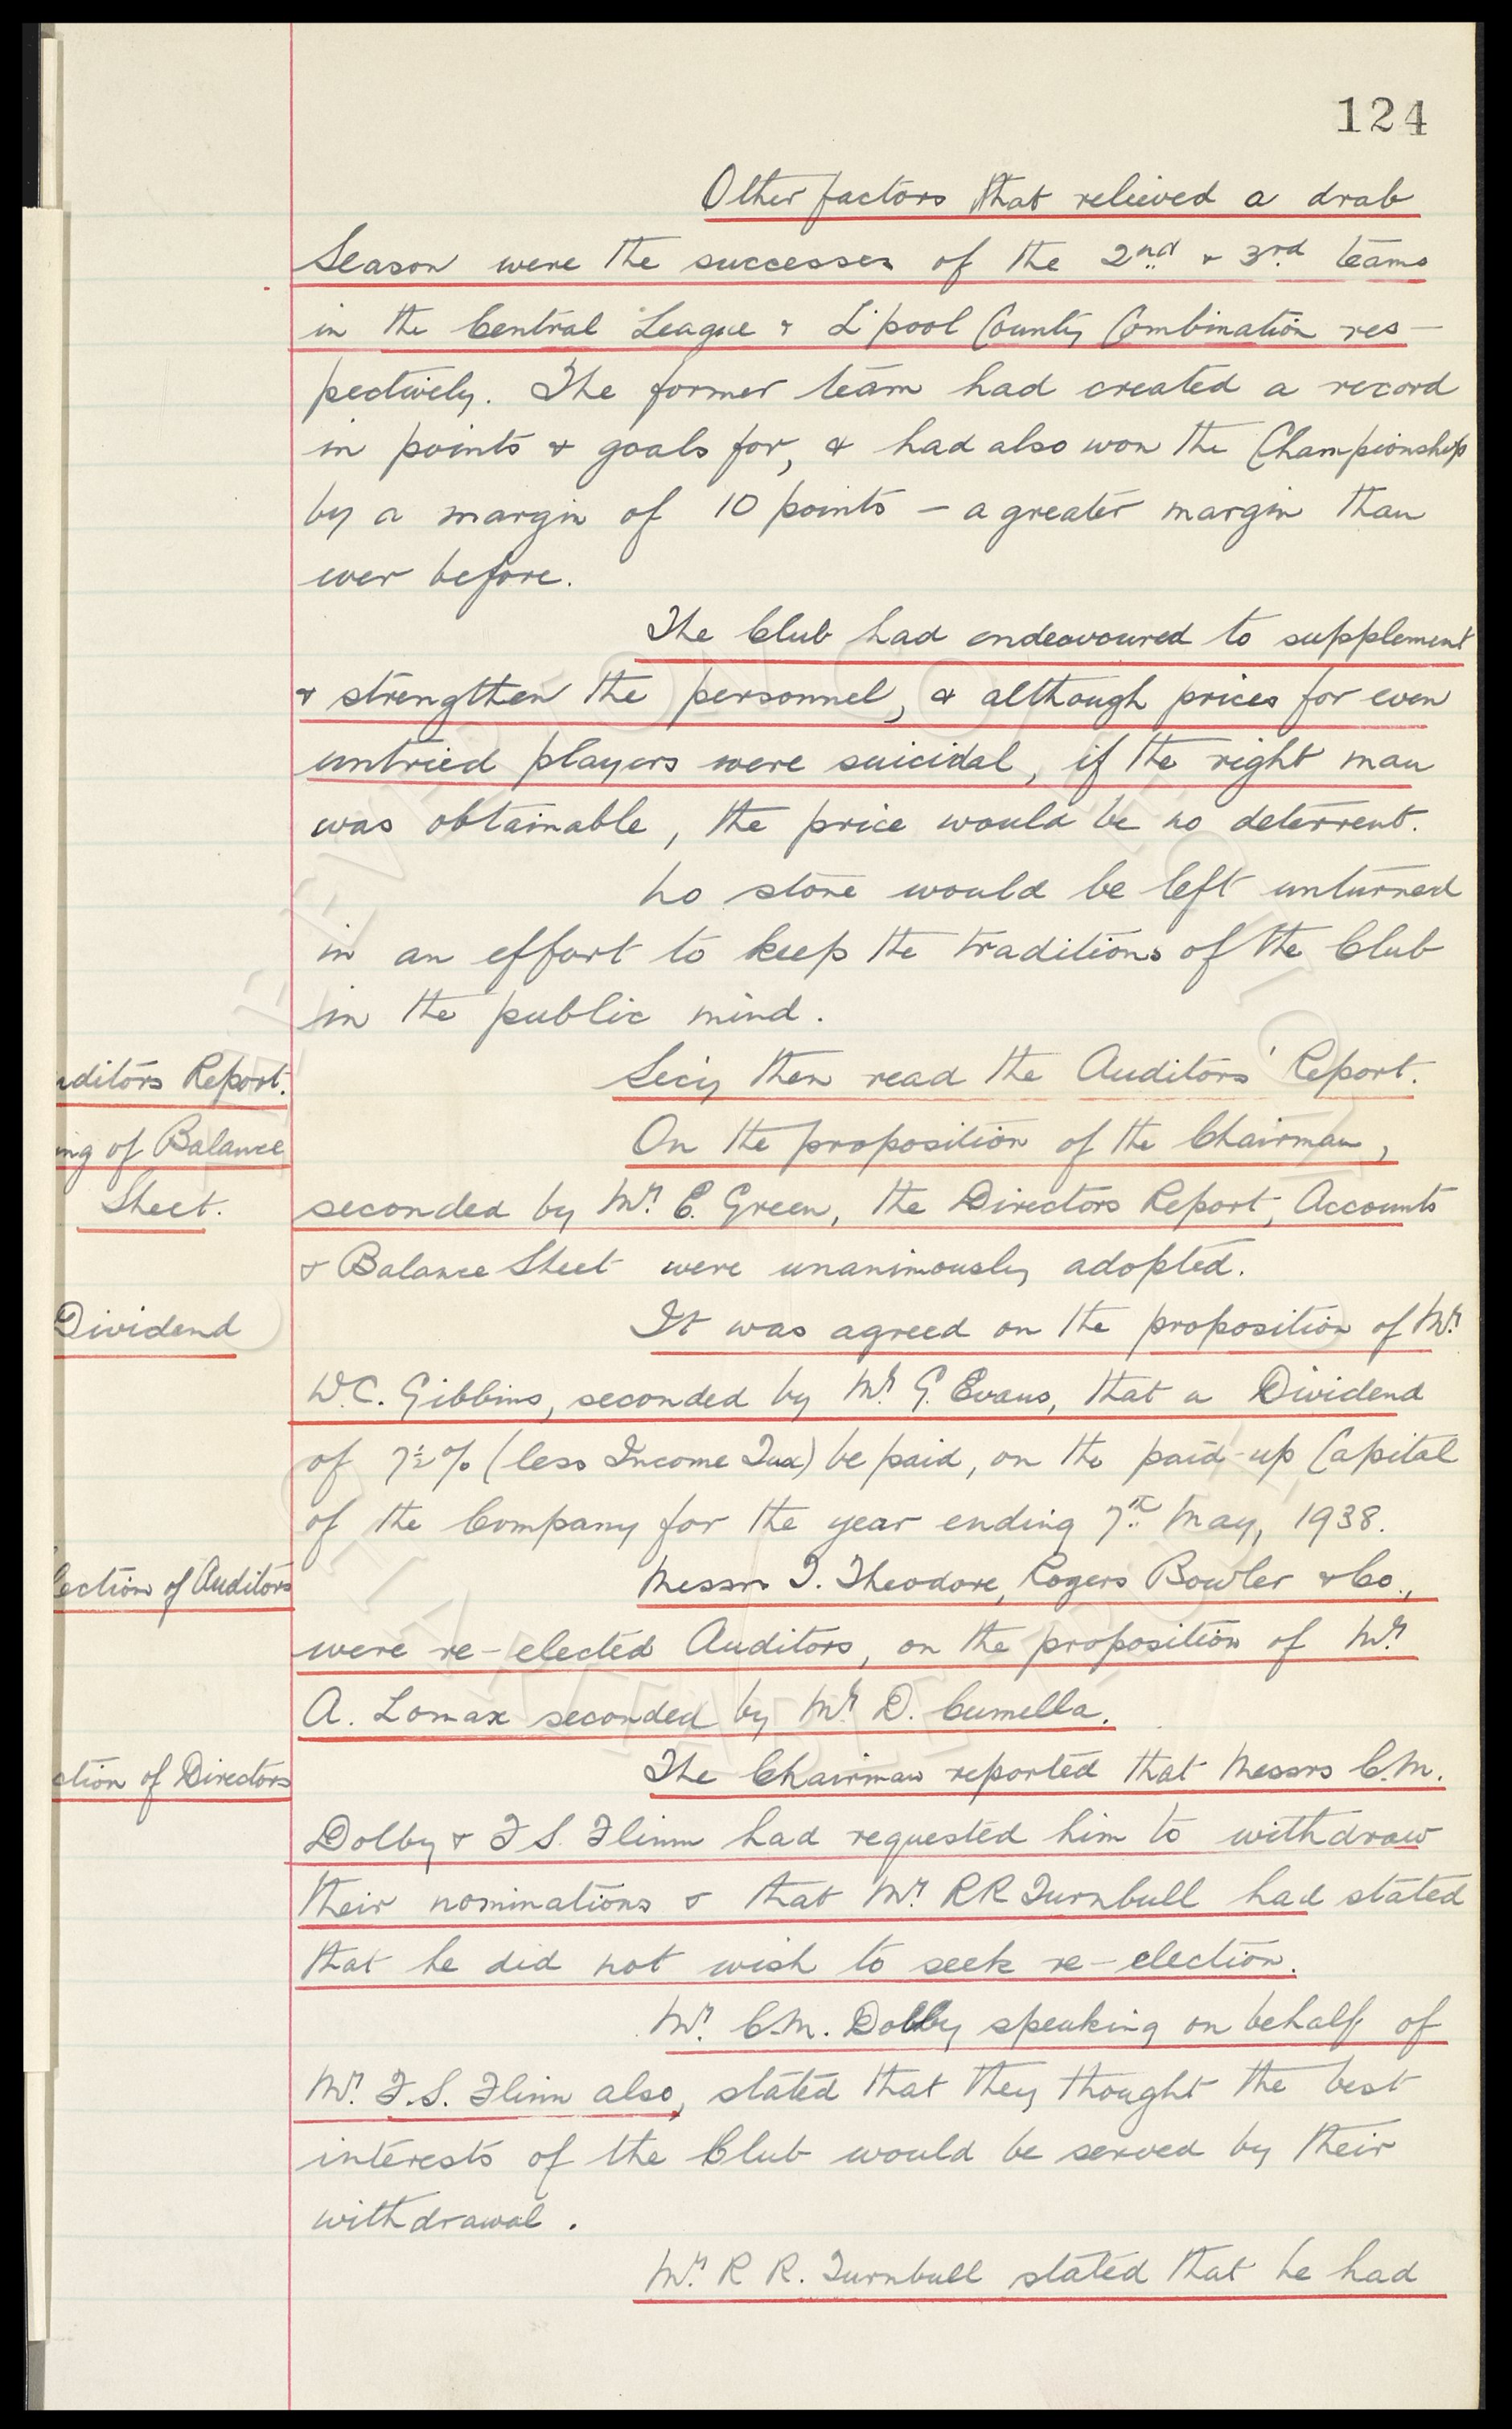 124
Other factors that relieved a drab
Season were the successes of the 2nd & 3rd teams
in the Central League & L'pool County Combination res-
pectively. The former team had created a record
in points & goals for, & had also won the Championship
by a margin of 10 points - a greater margin than
ever before.
The Club had endeavoured to supplement
& strengthen the personnel, & although prices for even
untried players were suicidal, if the right man
was obtainable, the price would be no deterrent.
No stone would be left unturned
in an effort to keep the traditions of the Club
in the public mind.
uditors Report.
Secy then read the Auditors' Report.
ing of Balance
On the proposition of the Chairman,
Sheet.
seconded by Mr. E. Green, the Directors Report, Accounts
& Balance Sheet were unanimously adopted.
Dividend
It was agreed on the proposition of Mr.
W.C. Gibbins, seconded by Mr. G. Evans, that a Dividend
of 7½% (less Income Tax) be paid, on the paid-up Capital
of the Company for the year ending 7th May, 1938.
lection of Auditors
Messrs T. Theodore, Rogers Bowler & Co.,
were re-elected Auditors, on the proposition of Mr.
A. Lomax seconded by Mr. D. Cumella.
ction of Directors
The Chairman reported that Messrs C.M.
Dolby & F S. Flinn had requested him to withdraw
their nominations & that Mr. R R Turnbull had stated
that he did not wish to seek re-election.
Mr. C.M. Dolby speaking on behalf of
Mr. F.S. Flinn also, stated that they thought the best
interests of the Club would be served by their
withdrawal.
Mr. R R. Turnbull stated that he had